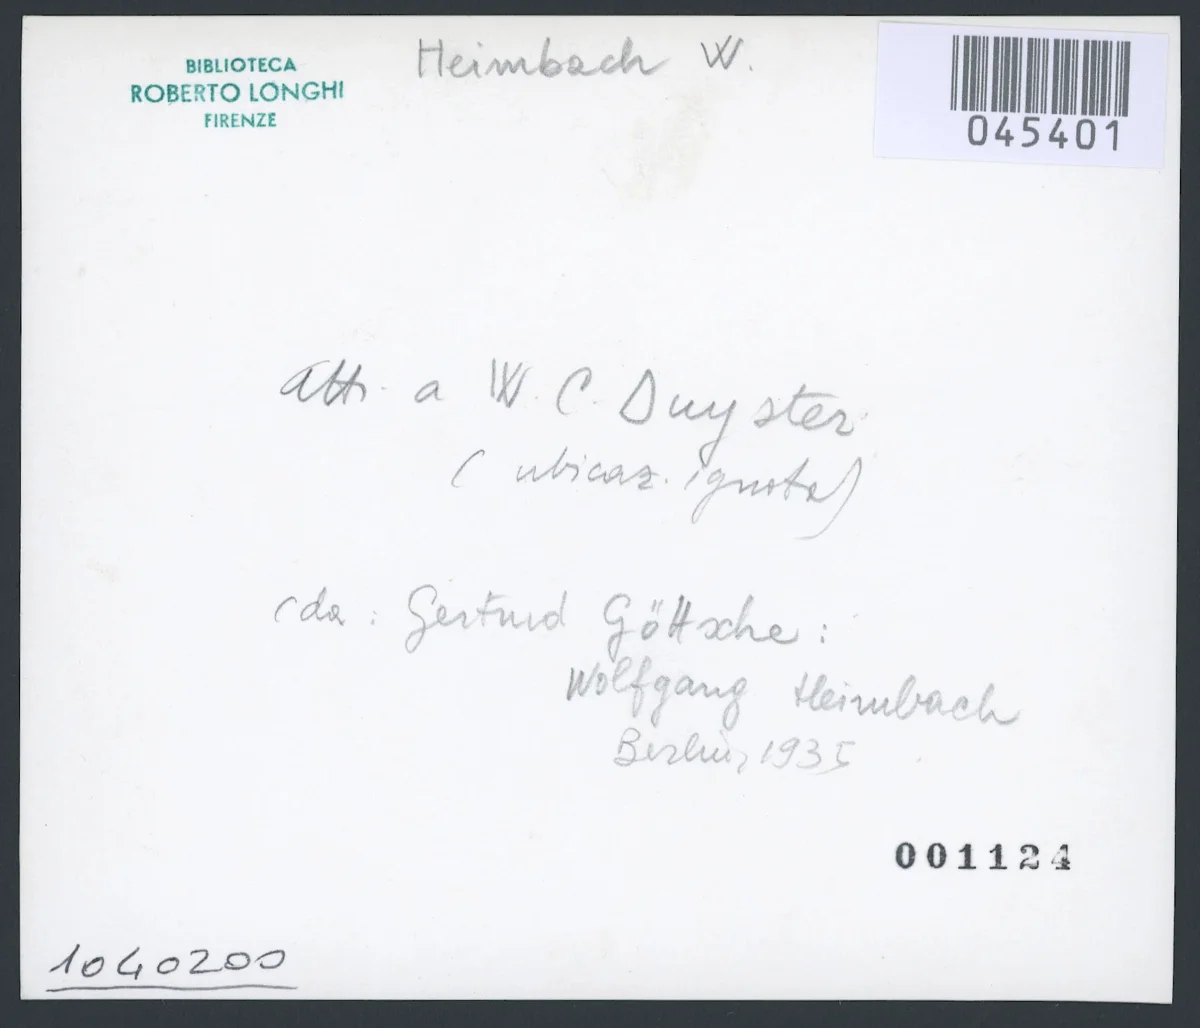 BIBLIOTECA
ROBERTO LONGHI
FIRENZE
Heimbach W.
045401
att. a W. C. Duyster
( ubicaz. ignota)
(da : Gertrud Göttsche :
Wolfgang Heimbach
Berlin, 1935
001124
1040200